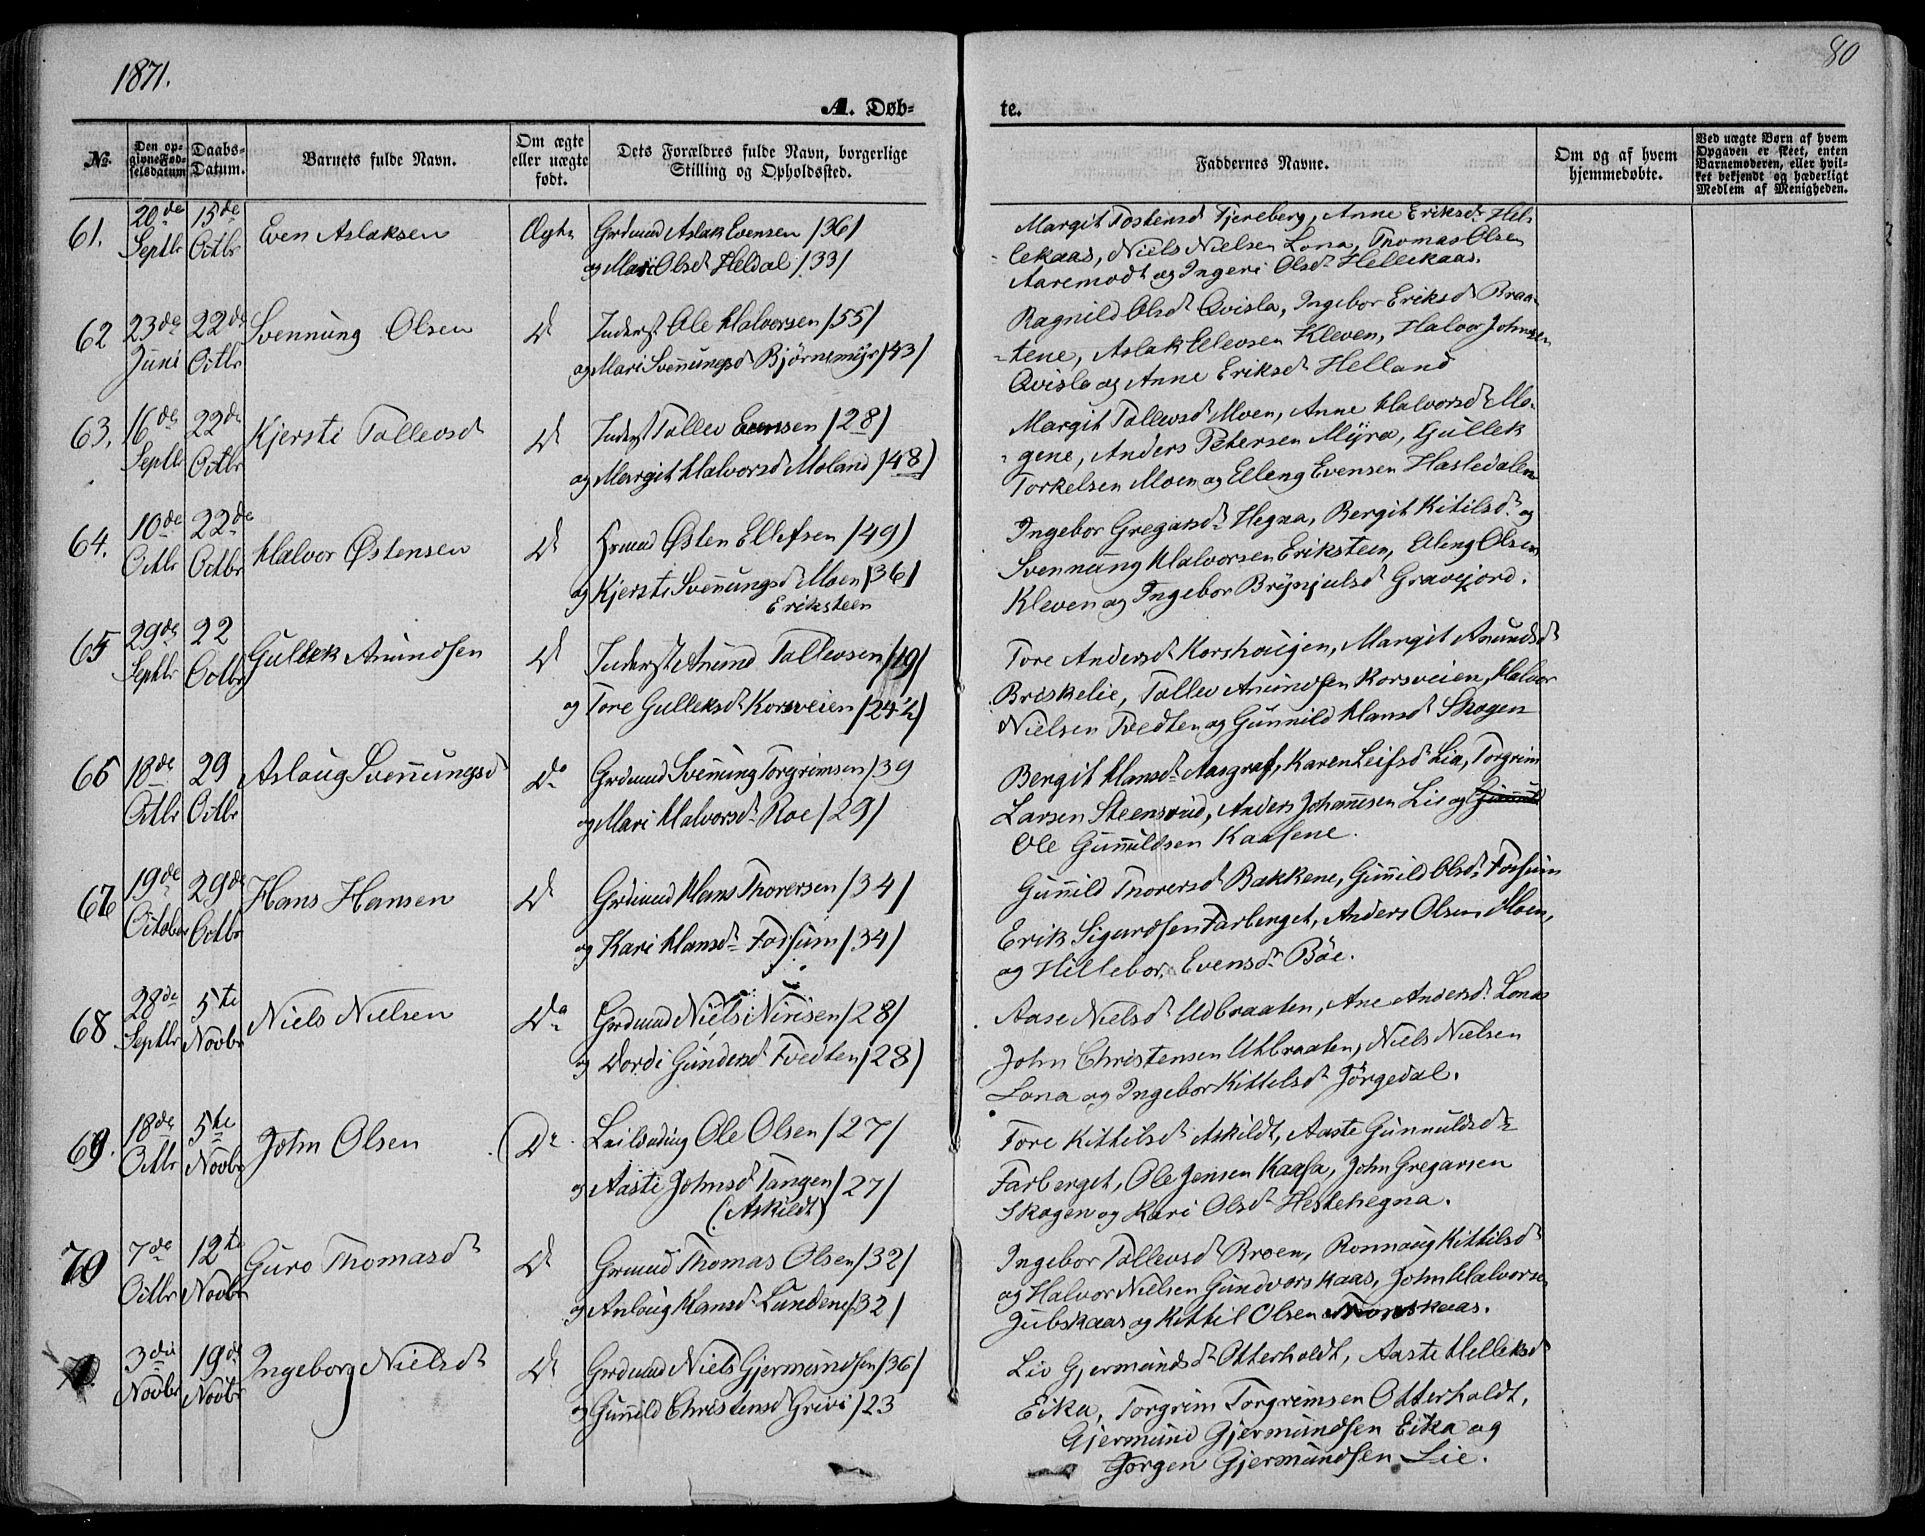 1871.
80
A. Døb-
te.
No.
Den op-
givne Fød-
selsdatum
Daabs-
Datum.
Barnets fulde Navn.
Om ægte
eller uægte
født.
Dets Forældres fulde Navn, borgerlige
Stilling og Opholdssted.
Faddernes Navne.
Om og af hvem
hjemmedøbte.
Ved uægte Børn af hvem
Opgaven er skeet, enten
Barnemoderen, eller hvil-
ket bekjendt og hæderligt
Medlem af Menigheden.
61.
20de
Septbr
15de
Octbr
Even Aslaksen
Ægte
Grdmd Aslak Evensen /36/
og Mari Olsdt Heldal /33/
Margit Tostensdt Fjereberg, Anne Eriksdt Hel-
lekaas, Niels Nielsen Lona, Thomas Olsen
Aaremodt og Ingeri Olsdt Hellekaas.
62
23de
Juni
22de
Octbr
Svennung Olsen
Do
Inderst Ole Halvorsen /55/
og Mari Svennungsd Bjørnemyr /43/
Ragnild Olsdt Qvisla, Ingebor Eriksdt Braa-
tene, Aslak Ellevsen Kleven, Halvor Johnsen
Qvisla og Anne Eriksdt Helland
63.
16de
Septbr
22de
Octbr
Kjersti Tollevsd
Do
Inderst Tollev Evensen /28/
og Margit Halvorsd Moland /48/
Margit Tollevsdt Moen, Anne Halvorsdt Mo-
gene, Anders Petersen Myra, Gullek
Torkelsen Moen og Elleng Evensen Hasledalen
64.
10de
Octbr
22de
Octbr
Halvor Østensen
Do
Grmd Østen Ellefsen /49/
og Kjersti Svennungsd Moen /36/
Eriksteen
Ingebor Gregarsdt Hegna, Bergit Kitilsdt og
Svennung Halvorsen Eriksteen, Elleng Olsen
Kleven og Ingebor Brynjulsdt Gravejord.
65
29de
Septbr
22
Octbr
Gullek Anundsen
Do
Inderst Anund Tollevsen /19/
og Tore Gulleksdt Korsveien /24½/
Tore Andersdt Korshougen, Margit Anundsdt
Briskelie, Tollev Anundsen Korsveien, Halvor
Nielsen Tvedten og Gunnild Hansdt Skogen
66
18de
Octbr
29
Octbr
Aslaug Svennungsd
Do
Grdmd Svennung Torgrimsen /39
og Mari Halvorsdt Roe /29/
Bergit Hansdt Aasgraf, Karen Leifsdt Lia, Torgrim
Larsen Steensrud, Anders Johannesen Lie og
Ole Gunnuldsen Kaasene.
67
19de
October
29de
Octbr
Hans Hansen
Do
Grdmd Hans Thorersen /34/
og Kari Hansdt Fossum /34/
Gunnild Thorersdt Bakkene, Gunnild Olsdt Fossum
Erik Sigurdsen Farberget, Anders Olsen Moen,
og Hillebor Evensdt Böe.
68
28de
Septbr
5te
Novbr
Niels Nielsen
Do
Grdmd Niels Nirisen /28/
og Dordi Gundersdt Tvedten /28/
Aase Nielsdt Udbraaten, Ane Andersdt Lona
John Christensen Uhbraaten, Niels Nielsen
Lona og Ingebor Kittelsdt Jörgedal.
69.
18de
Octbr
5te
Novbr
John Olsen
Do
Leilending Ole Olsen /27/
og Aaste Johnsdt Tangen /27/
(Askildt)
Tore Kittilsdt Askildt, Aaste Gunnuldsdt
Farberget, Ole Jensen Kaasa, John Gregarsen
Skogen og Kari Olsdt Hestehegna.
70
7de
Octbr
12te
Novbr
Guro Thomasdt
Do
Grmd Thomas Olsen /32/
og Anlaug Hansdt Lundene /32/
Ingebor Tollevsdt Broen, Ronnaug Kittilsdt
og Halvor Nielsen Gundvorskaas, John Halvorsen
Jubskaas og Kittil Olsen Tronskaas.
3die
Novbr
19de
Novbr
Ingeborg Nielsdt
Do
Grdmd Niels Gjermundsen /36/
og Gunild Christensd Grivi /23
Liv Gjermundsdt Otterholdt, Aaste Helleksdt
Eika, Torgrim Torgrimsen Otterholdt,
Gjermund Gjermundsen Eika og
Jorgen Gjermundsen Lie.